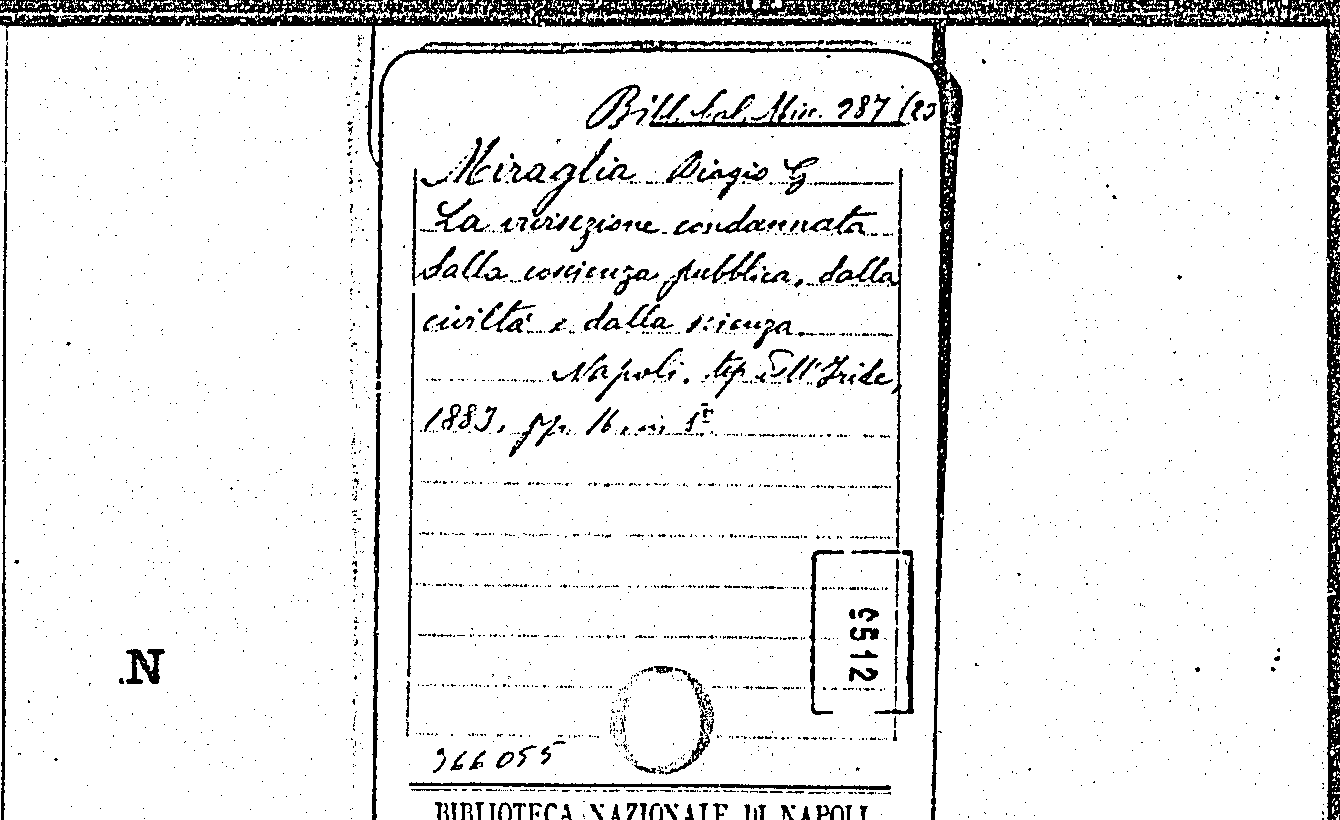 Bibl. Cal. Misc. 287 (23
Miraglia Biagio G
La vivisezione condannata
dalla coscienza pubblica, dalla
civiltà e dalla scienza.
Napoli, tip dell'Iride,
1883, pp. 16, in 8º
6512
.N
366055
BIBLIOTECA NAZIONALE DI NAPOLI